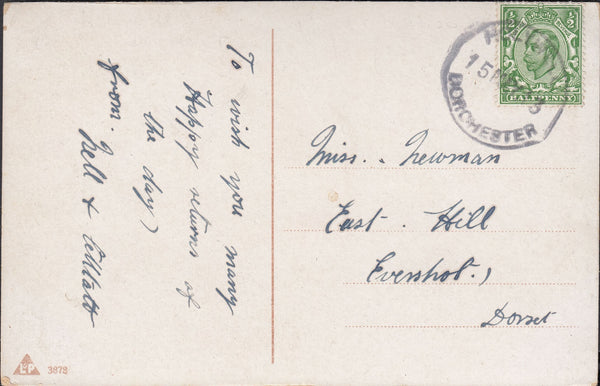 To wish you many
Happy returns of
the day)
from. Nell &
Miss. Newman
East. Hill
Evershot.,
Dorset
DORCHESTER
15
HALFPENNY
3878